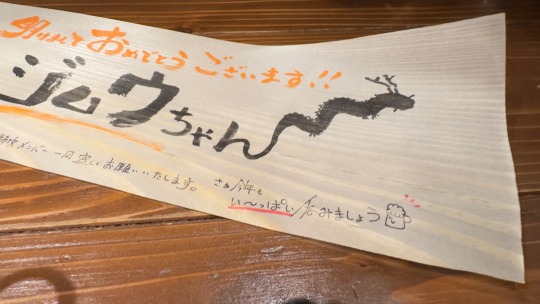 明けまして おめでとう ございます!!
ジムウちゃん
メンバー一同 宜しくお願いいたします。 さぁ今年も
い〜っぱい 呑みましょう